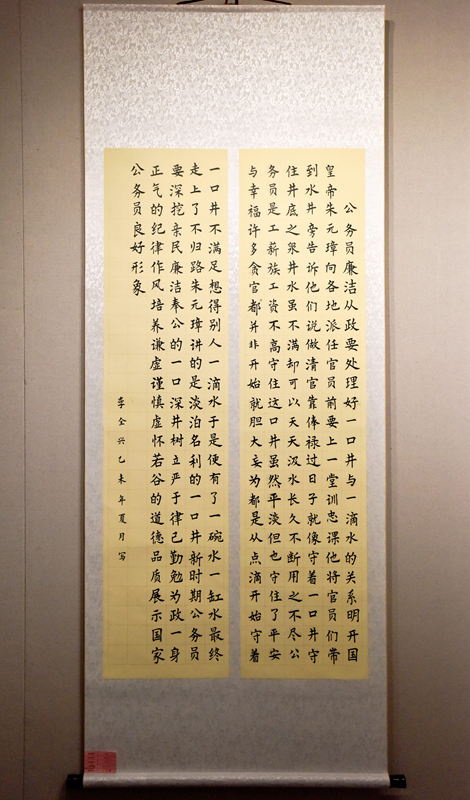 公务员廉洁从政要处理好一口井与一滴水的关系明开国
皇帝朱元璋向各地派任官员前要上一堂训忠课他将官员们带
到水井旁告诉他们说做清官靠俸禄过日子就像守着一口井守
住井底之泉井水虽不满却可以天天汲水长久不断用之不尽公
务员是工薪族工资不高守住这口井虽然平淡但也守住了平安
与幸福许多贪官都并非开始就胆大妄为都是从点滴开始守着
一口井不满足想得别人一滴水于是便有了一碗水一缸水最终
走上了不归路朱元璋讲的是淡泊名利的一口井新时期公务员
要深挖亲民廉洁奉公的一口深井树立严于律己勤勉为政一身
正气的纪律作风培养谦虚谨慎虚怀若谷的道德品质展示国家
公务员良好形象
李全兴乙未年夏月写